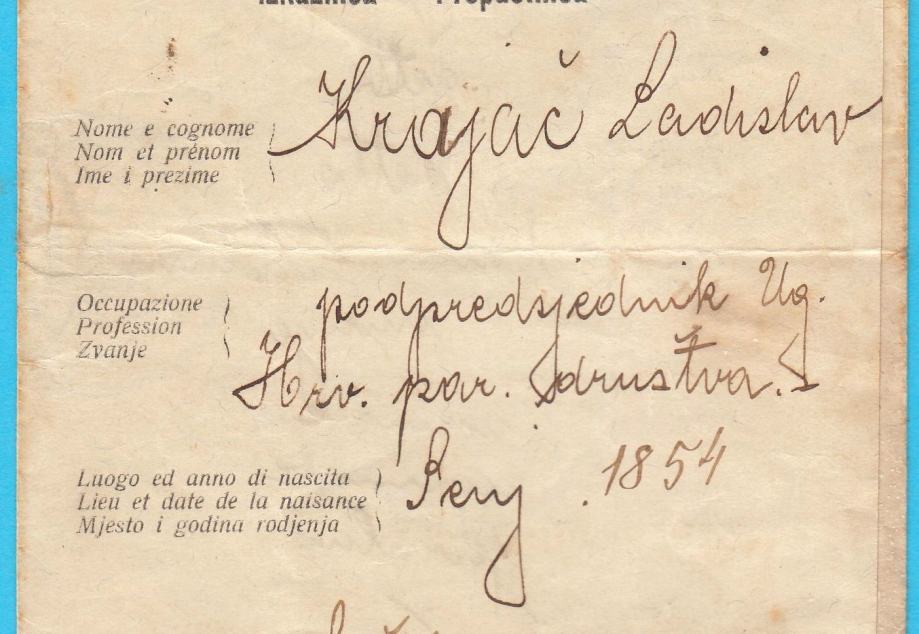 Nome e cognome
Nom et prénom
Ime i prezime
Krajač Ladislav
Occupazione
Profession
Zvanje
podpredsjednik Ug.
Hrv. par. družtva.
Luogo ed anno di nascita
Lieu et date de la naisance
Mjesto i godina rodjenja
Senj . 1854